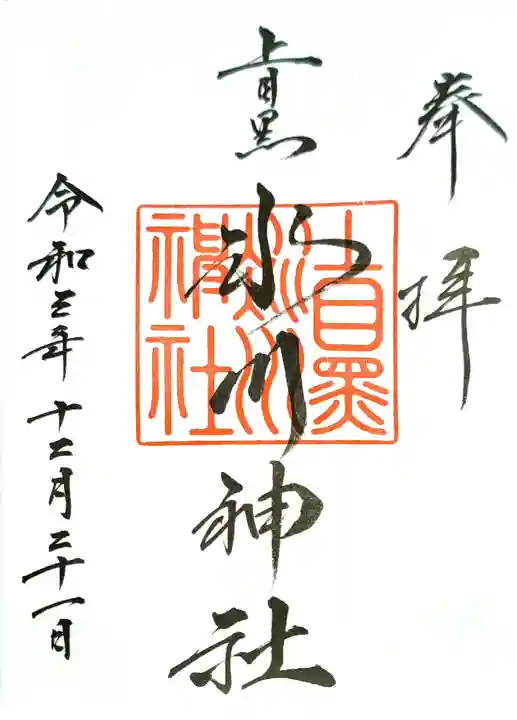 奉拝
上目黒
氷川神社
上目黒氷川神社
令和三年十二月二十一日